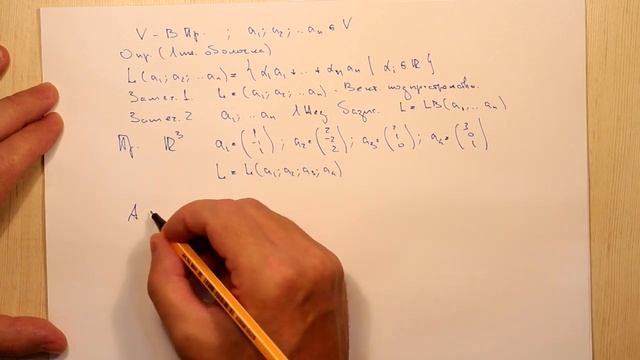 V - В Пр. ; a₁; a₂; .. aₙ ∈ V
Опр. (Лин. оболочка)
L(a₁; a₂; .. aₙ) = { α₁a₁ + .. + αₙaₙ | αᵢ ∈ ℝ }
Замеч. 1. L = (a₁; a₂; .. aₙ) - Вект. подпространство.
Замеч. 2 a₁; .. aₙ базис. L = (a₁, .. aₙ)
Пр. ℝ³ a₁ = (1 -1 1); a₂ = (2 -2 2); a₃ = ( 1 0); a₄ = (3 0 1)
L = L(a₁; a₂; a₃; a₄)
A